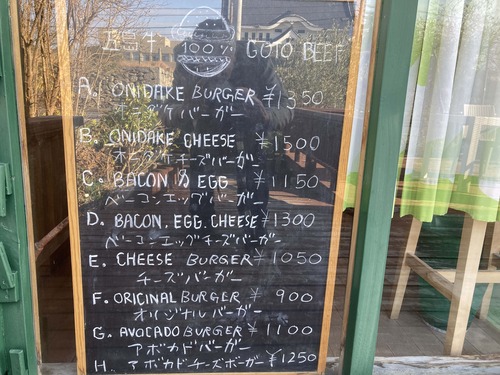 五島牛 100% GOTO BEEF
A. ONIDAKE BURGER ¥1350
オニダケバーガー
B. ONIDAKE CHEESE ¥1500
オニダケチーズバーガー
C. BACON & EGG ¥1150
ベーコンバーガー
D. BACON.EGG.CHEESE ¥1300
ベーコンエッグチーズバーガー
E. CHEESE BURGER ¥1050
チーズバーガー
F. ORIGINAL BURGER ¥900
オリジナルバーガー
G. AVOCADO BURGER ¥1100
アボカドバーガー
H. アボカドチーズボーガー ¥1250